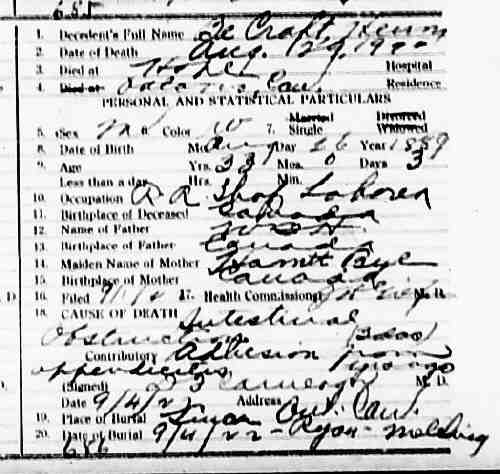 655
1. Decedent's Full Name Ze Craft, Henry
2. Date of Death Aug. 29, 1922
3. Died at Hotel Hospital
4. Died at Can. Residence
PERSONAL AND STATISTICAL PARTICULARS
5. Sex M 6. Color W 7. Married Single Divorced Widowed
8. Date of Birth Mo. Aug Day 26 Year 1889
9. Age Yrs. 33 Mos. 0 Days 3
Less than a day Hrs. Min.
10. Occupation R R Shop Laborer
11. Birthplace of Deceased Canada
12. Name of Father
13. Birthplace of Father Canada
14. Maiden Name of Mother Harriett Bye
15. Birthplace of Mother Canada
16. Filed 9/1/2 17. Health Commissioner M. D.
18. CAUSE OF DEATH Intestinal
Obstruction (3 das)
Contributory Adhesion from
appendicitis 1 yr ago
(Signed) M. D.
Date 9/4/22 Address
19. Place of Burial Ont. Can.
20. Date of Burial 9/4/22 - Ryan -
656